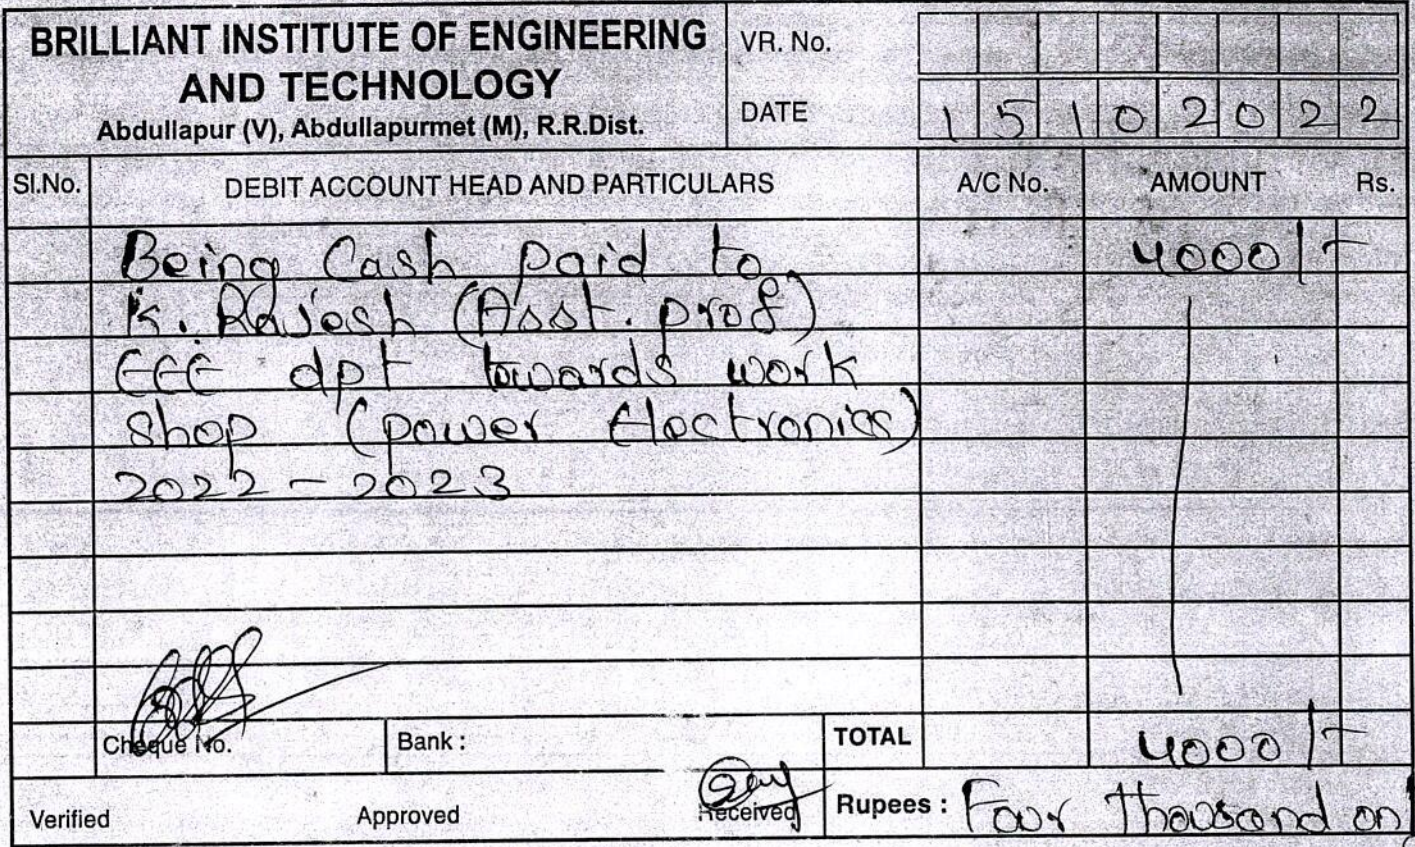 BRILLIANT INSTITUTE OF ENGINEERING
AND TECHNOLOGY
Abdullapur (V), Abdullapurmet (M), R.R.Dist.
VR. No.
DATE 15102022
Sl.No. DEBIT ACCOUNT HEAD AND PARTICULARS A/C No. AMOUNT Rs.
Being Cash paid to 4000/-
K. Rajesh (Asst. prof)
EEE dpt towards work
shop (power Electronics)
2022 - 2023
Cheque No. Bank : TOTAL 4000/-
Verified Approved Received Rupees : Four thousand on